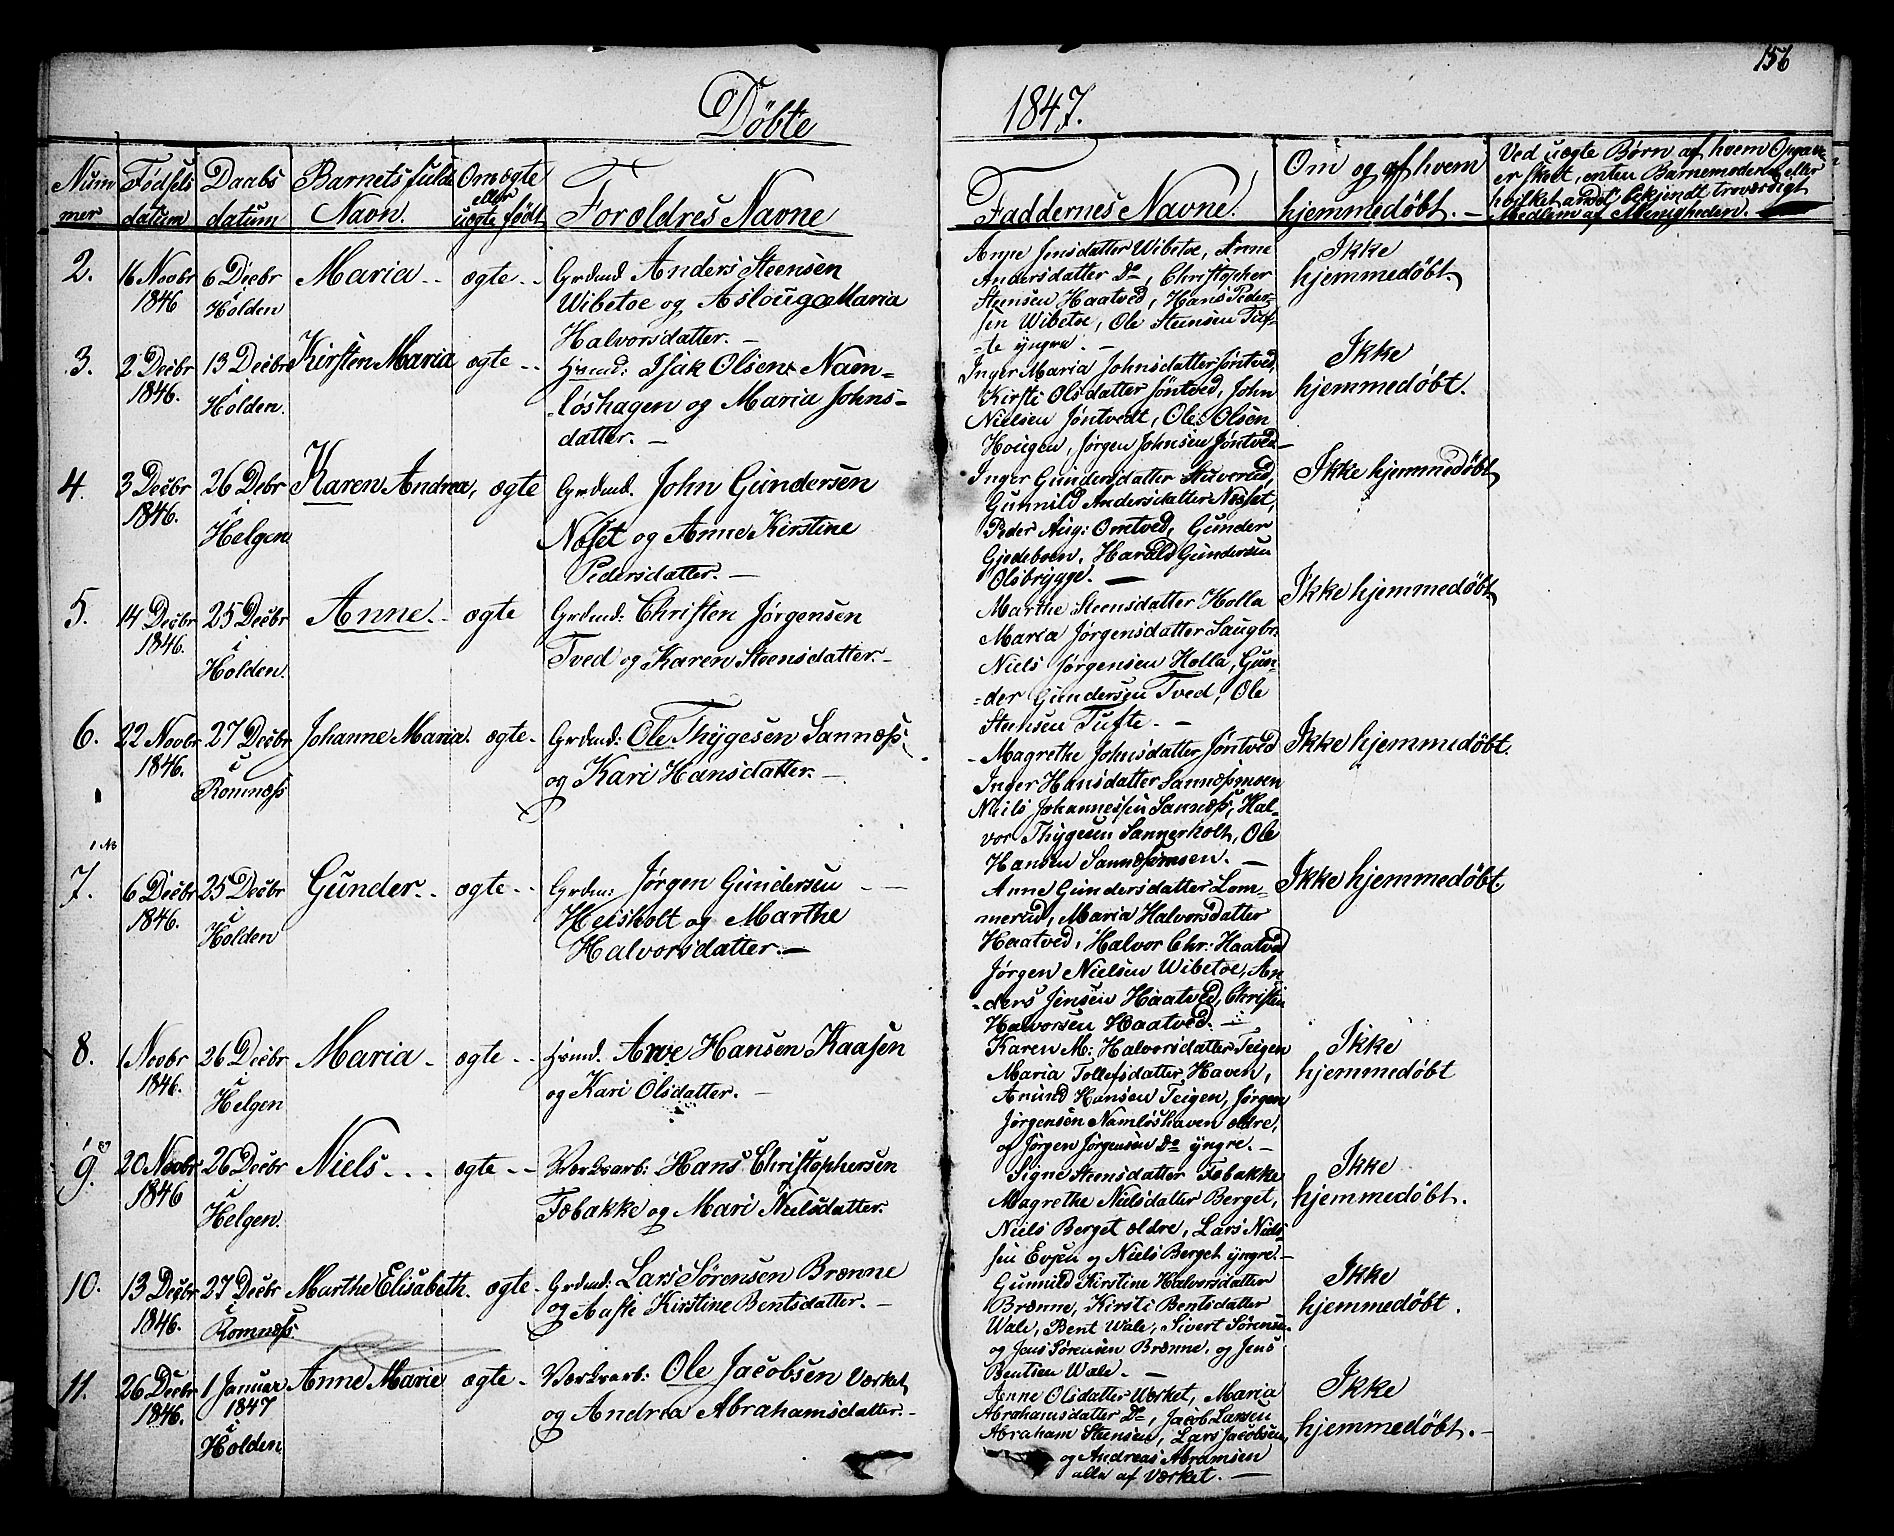 156
Døbte
1847.
Num
mer
Fødsels
datum
Daabs
datum
Barnets fulde
Navn.
Om ægte
eller
uægte født
Forældres Navne
Faddernes Navne.
Om og af hvem
hjemmedøbt. -
Ved uægte Børn af hvem Opgave
er skeet, enten Barnemoderen eller
hvilket andet bekjendt troværdigt
Medlem af Menigheden.
2.
16 Novbr
1846
6 Decbr
i
Holden
Maria
ægte
Grdmd. Anders Steensen
Wibetoe og Aslouge Maria
Halvorsdatter. -
Anne Jensdatter Wibetoe, Anne
Andersdatter Do, Christopher
Steensen Haatved, Hans Peder-
sen Wibetoe, Ole Steensen Tuf-
-te yngre. -
Ikke
hjemmedøbt.
3.
2 Decbr
1846.
13 Decbr
i
Holden.
Kirsten Maria
ægte
Hsmd: Isak Olsen Nam-
-løshagen og Maria Johns-
datter. -
Inger Maria Johnsdatter Jøntved,
Kirsti Olsdatter Jøntved, John
Nielsen Jøntvedt, Ole Olsen
Hougen, Jørgen Johnsen Jøntved
Ikke
hjemmedøbt.
4.
3 Decbr
1846.
26 Debr
i
Helgen
Karen Andrea,
ægte
Grdmd. John Gundersen
Næset og Anne Kirstine
Pedersdatter. -
Inger Gundersdatter Stuverud,
Gunnild Andersdatter Næset,
Peder Aug: Omtved, Gunder
Gjedeboen, Harald Gundersen
Olsbrygge. -
Ikke hjemmedøbt
5.
14 Decbr
1846.
25 Decbr
i
Holden.
Anne.
ægte
Grdmd: Christen Jørgensen
Tved og Karen Steensdatter. -
Marthe Steensdatter Holla
Maria Jørgensdatter Saugbr:
Niels Jørgensen Holla, Gun-
-der Gundersen Tved, Ole
Steensen Tufte. -
Ikke hjemmedøbt
6.
22 Novbr
1846.
27 Decbr
i
Romnæss
Johanne Maria.
ægte.
Grdmd: Ole Thygesen Sannæss
og Kari Hansdatter. -
- Magrethe Johnsdatter Jøntved
Inger Hansdatter Sannæssmoen
Niels Johannessen Sannæss, Hal-
vor Thygesen Sannerholt, Ole
Hansen Sannæsmoen. -
Ikke hjemmedøbt.
7.
6 Decbr
1846.
25 Decbr
i
Holden
Gunder
ægte
Grdm: Jørgen Gundersen
Heisholt og Marthe
Halvorsdatter. -
Anne Gundersdatter Lem-
merud, Maria Halvorsdatter
Haatved, Halvor Chr: Haatved
Jørgen Nielsen Wibetoe, An
-ders Jensen Haatved, Christen
Halvorsen Haatved.
Ikke hjemmedøbt.
8.
1 Novbr
1846.
26 Decbr
i
Helgen
Maria
ægte
Hsmd. Arve Hansen Kaasen
og Kari Olsdatter. -
Karen M: Halvorsdatter Teigen
Maria Tollefsdatter Haven,
Amund Hansen Teigen, Jørgen
Jørgensen Namløshaven ældre,
og Jørgen Jørgensen Do yngre. -
Ikke
hjemmedøbt
9.
20 Novbr
1846
26 Decbr
i
Helgen.
Niels
ægte
Værksarb: Hans Christophersen
Tobakke og Mari Nielsdatter.
Signe Steensdatter Tobakke
Magrethe Nielsdatter Berget,
Niels Berget ældre, Lars Niel-
sen Evjen og Niels Berget yngre. -
Ikke
hjemmedøbt.
10.
13 Decbr
1846.
27 Decbr
i
Romnæss
Marthe Elisabeth.
ægte
Grdmd: Lars Sørensen Brænne
og Aaste Kirstine Bentsdatter. -
Gunnild Kirstine Halvorsdatter
Brænne, Kirsti Bentsdatter
Wale, Bent Wale, Sivert Sørensen
og Jens Sørensen Brænne, og Jens
Bentsen Wale. -
Ikke
hjemmedøbt.
11.
26 Decbr
1846.
1 Januar
1847
i
Holden
Anne Marie
ægte
Værksarb: Ole Jacobsen Værket
og Andrea Abrahamsdatter. -
Anne Olsdatter Værket, Maria
Abrahamsdatter Do, Jacob Larsen
Abraham Steensen, Lars Jacobsen,
og Andreas Abramsen
alle af Værket. -
Ikke
hjemmedøbt. -